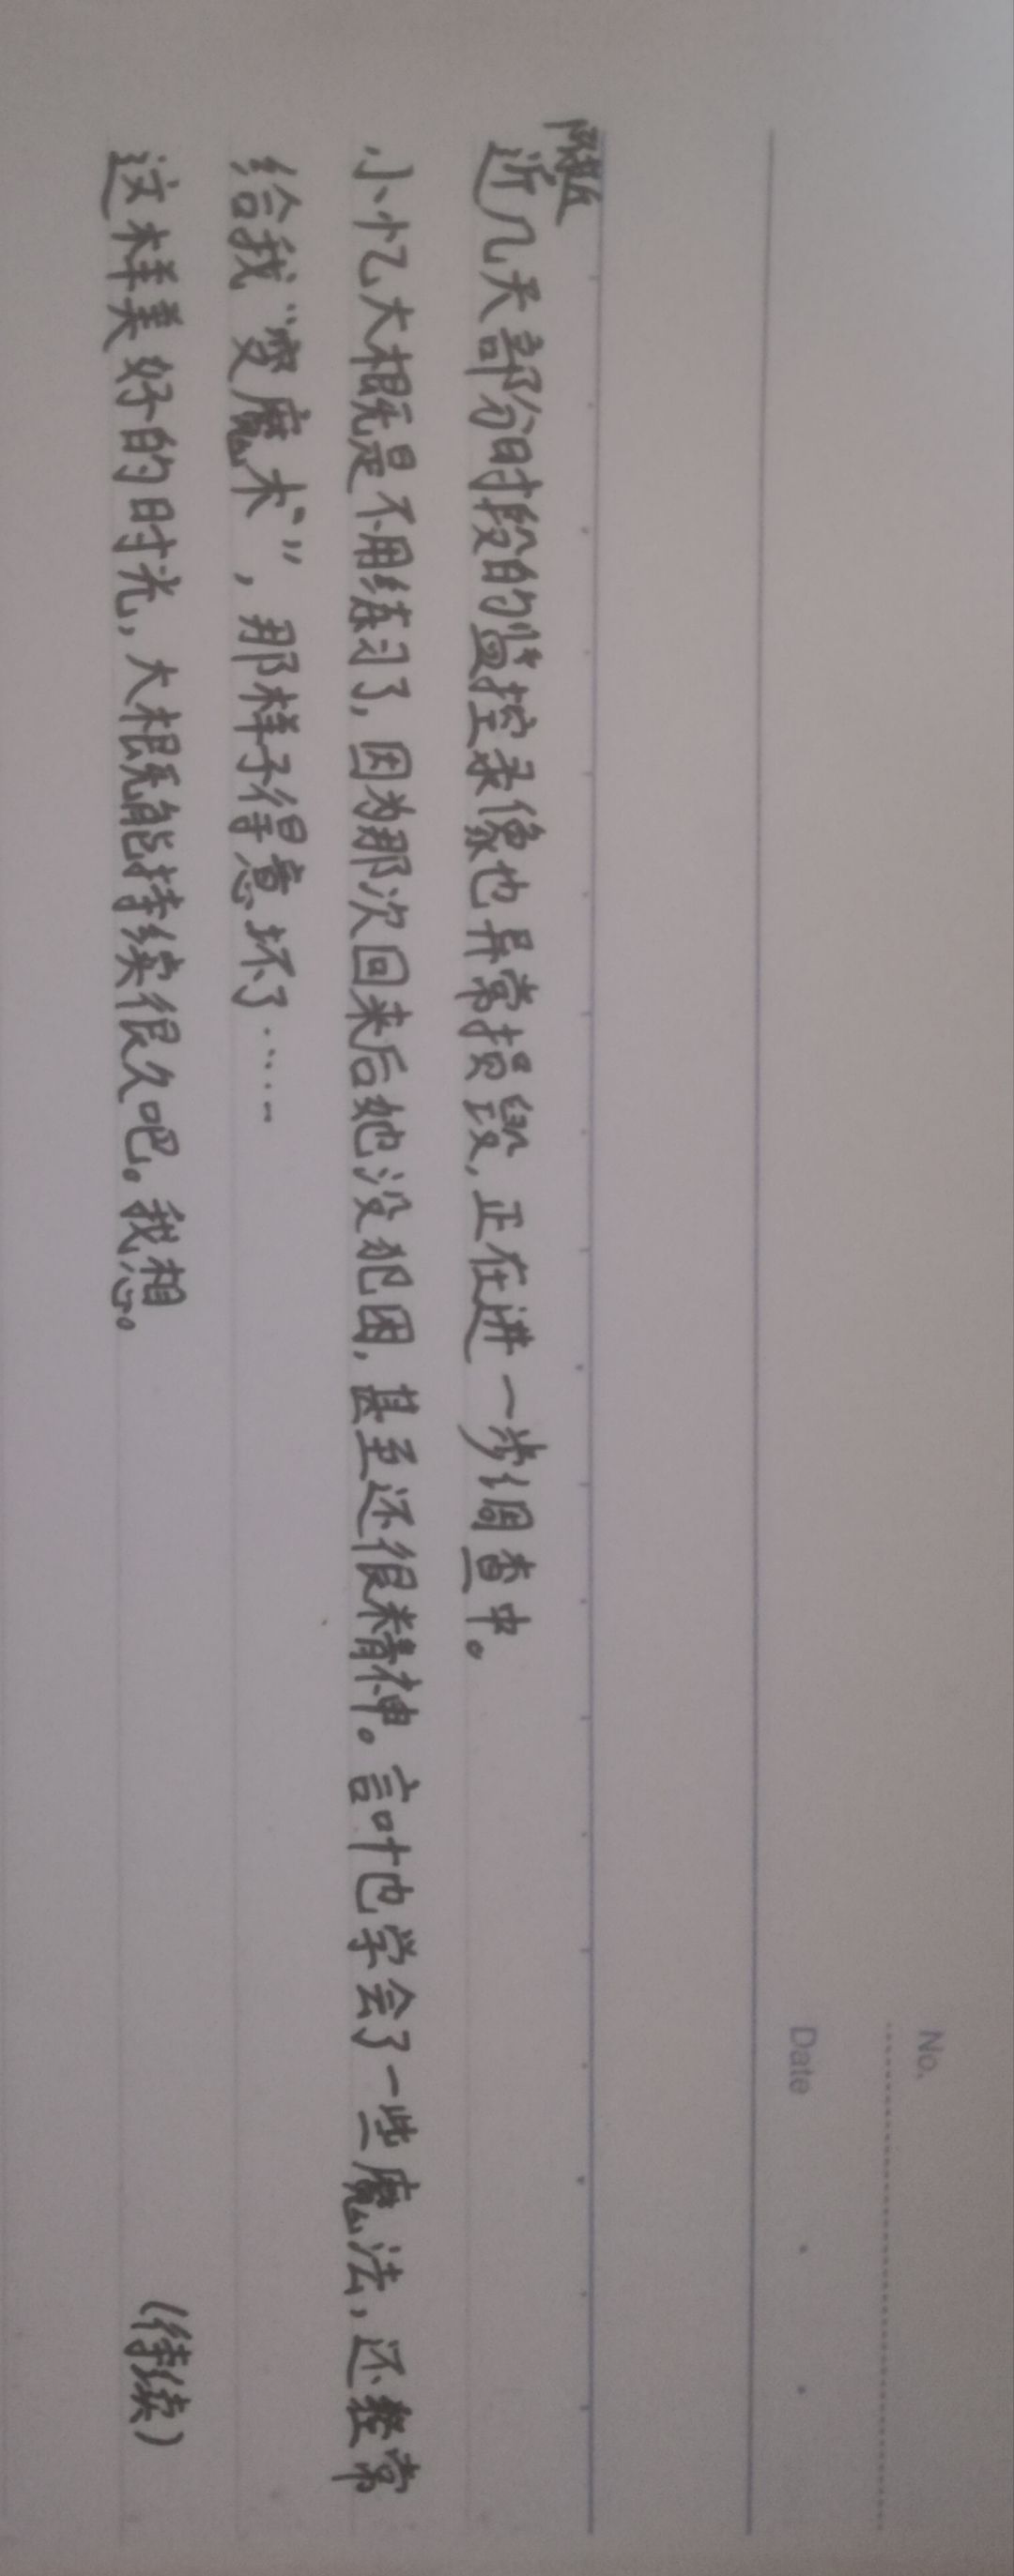 No.
Date
附近
近几天部分时段的监控录像也异常损毁,正在进一步调查中。
小忆大概是不用练习了,因为那次回来后她没犯困,甚至还很精神。言叶也学会了一些魔法,还经常
给我“变魔术”,那样子得意坏了……
这样美好的时光,大概能持续很久吧。我想。
(待续)